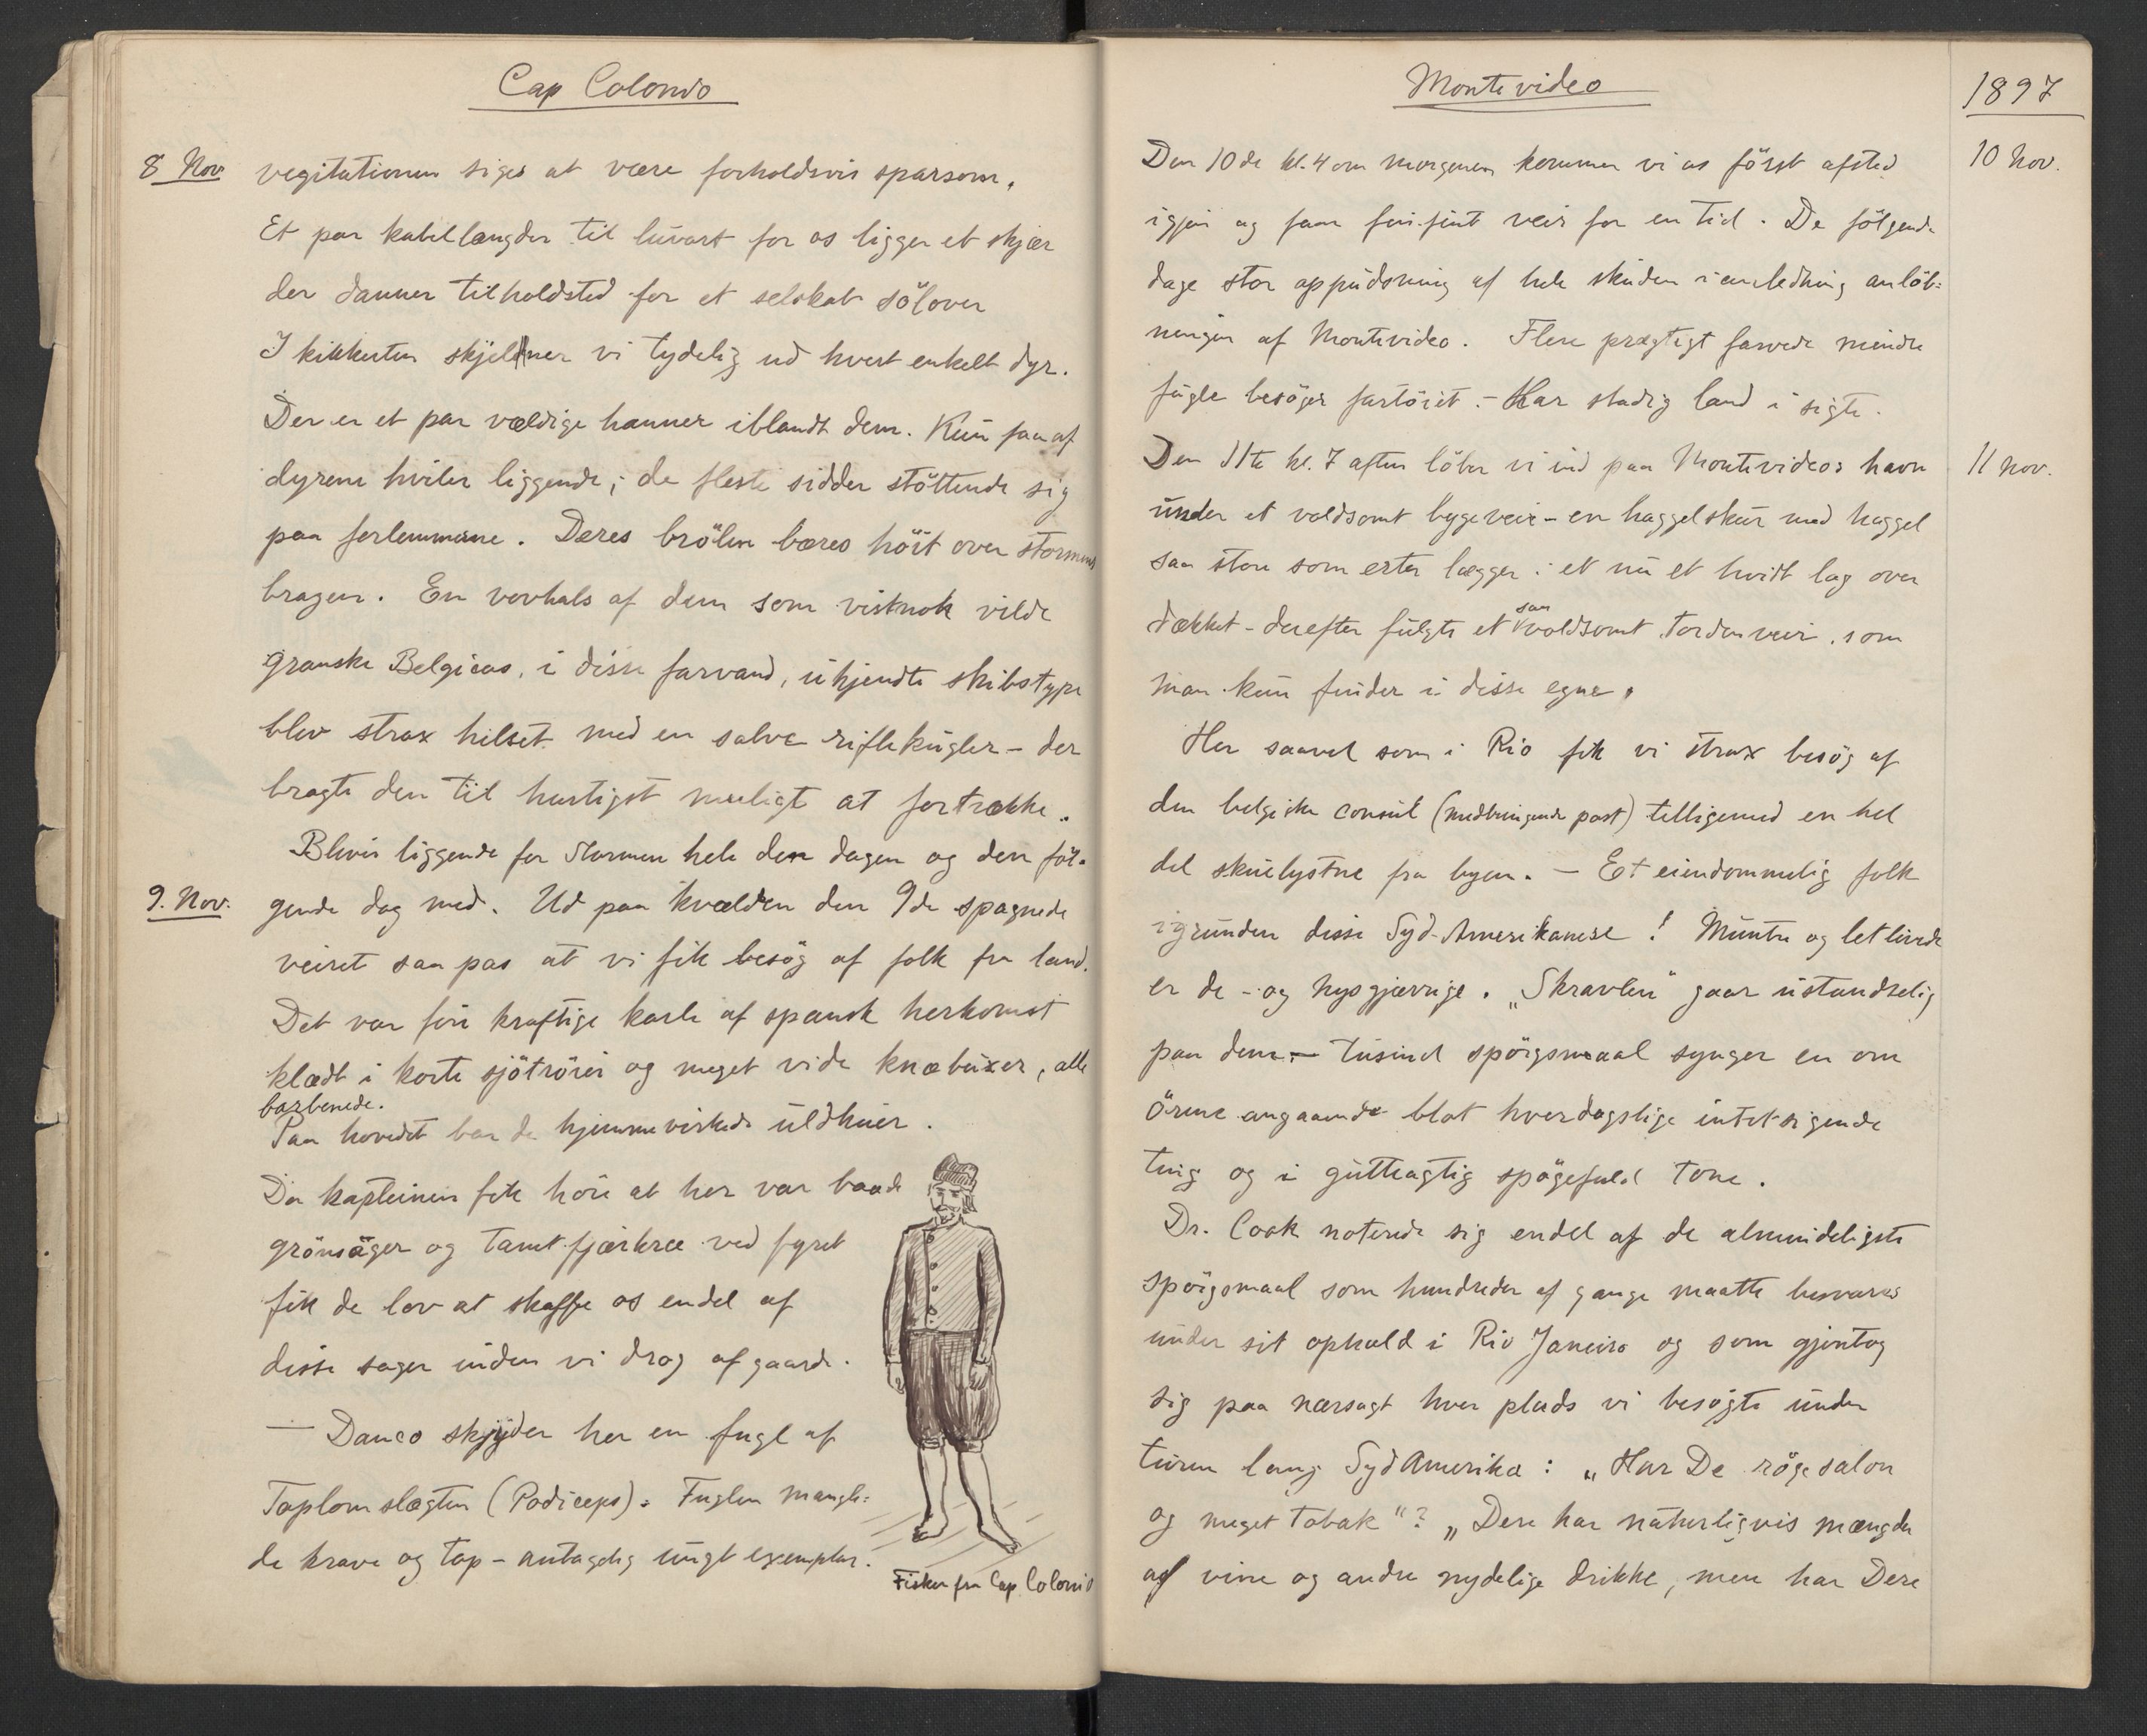 Cap Colonio
8 Nov
vegitationen siges at være forholdsvis sparsom.
Et par kabellængder til luvart for os ligger et skjær
der danner tilholdsted for et selskab sölöver
I kikkerten skjelner vi tydelig ud hvert enkelt dyr.
Der er et par vældige hanner iblandt dem. Kun faa af
dyrene hviler liggende; de fleste sidder stöttende sig
paa forlemmerne. Deres brölen bæres höit over stormens
bragen. En vovhals af dem som vistnok vilde
granske Belgicas, i disse farvand, ukjendte skibstype
blev strax hilset med en salve riflekugler – der
bragte den til hurtigst muligt at fortrække.
Bliver liggende for stormen hele den dagen og den föl-
9. Nov.
gende dag med. Ud paa kvælden den 9de spagnede
veiret saa pas at vi fik besög af folk fra land.
Det var fire kraftige karle af spansk herkomst
klædt i korte sjötröier og meget vide knæbuxer, alle
barbenede.
Paa hovedet bar de hjemmevirkede uldhuer.
Da kapteinen fik höre at her var baade
grönsager og tamt fjærkræ ved fyret
fik de lov at skaffe os endel af
disse sager inden vi drog afgaarde.
— Danco skyder her en fugl af
Toplomslægten (Podiceps). Fuglen mangle=
de krave og top – antagelig ungt exemplar.
Fisker fra Cap Colonio
Montevideo
1897
10 Nov.
Den 10de kl. 4 om morgenen kommer vi os först afsted
igjen og faar fint veir for en tid. De fölgende
dage stor oppudsning af hele skuden i anledning anlöb=
ningen af Montevideo. Flere prægtigt farvede mindre
fugle besöger fartöiet. – Har stadig land i sigte.
11 Nov.
Den 11te kl. 7 aften löber vi ind paa Montevideos havn
under et voldsomt bygeveir – en haggelskur med haggel
saa store som erter lægger i et nu et hvidt lag over
dækket – derefter fulgte et saa voldsomt tordenveir, som
man kun finder i disse egne.
Her saavel som i Rio fik vi strax besög af
den belgiske consul (medbringende post) tilligemed en hel
del skuelystne fra byen. – Et eiendommelig folk
igrunden disse Syd-Amerikanese! Muntre og letlivede
er de – og nysgjærrige. „Skravlen" gaar ustandselig
paa dem – tusind spörgsmaal synger en om
örene angaaende blot hverdagslige intetsigende
ting og i gutteagtig spögefuld tone.
Dr. Cook noterede sig endel af de almindeligste
spörgsmaal som hundreder af gange maatte besvares
under sit ophold i Rio Janeiro og som gjentog
sig paa nærsagt hver plads vi besögte under
turen lang Syd Amerika: „Har De rögesalon
og meget tobak"? „Dere har naturligvis mængder
af vine og andre nydelige drikke, men har Dere